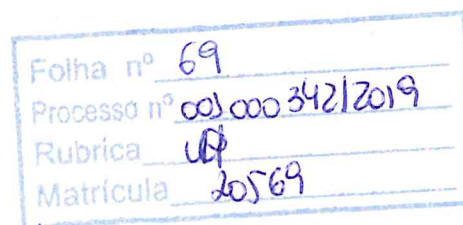 Folha nº 69
Processo nº 001000342/2019
Rubrica
Matrícula 20569